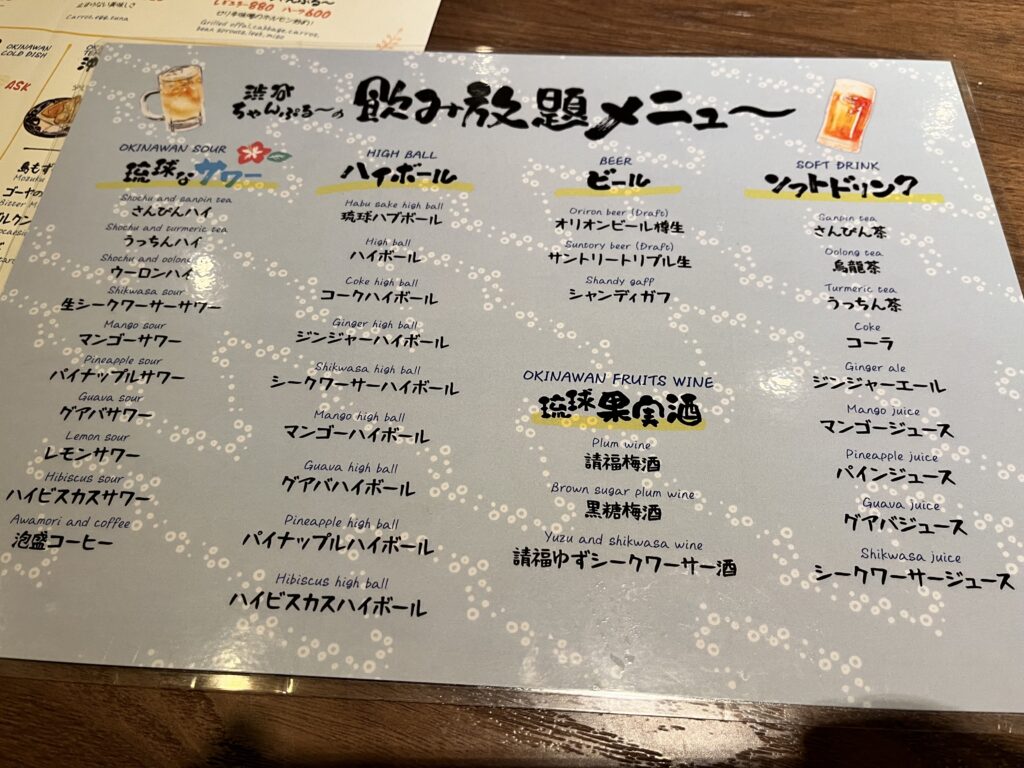 止まらない美味しさ
Carrot,egg,tuna
レギュラー880 ハーフ600
ピリ辛味噌のホルモン炒め!
Grilled offal,cabbage,carrot,
bean sprouts,leek,miso
OKINAWAN
COLD DISH
ASK
島もず
Mozuku
ゴーヤの
Bitter M
渋谷
ちゃんぷる〜の
飲み放題メニュ〜
OKINAWAN SOUR
琉球なサワー
Shochu and sanpin tea
さんぴんハイ
Shochu and turmeric tea
うっちんハイ
Shochu and oolong
ウーロンハイ
Shikwasa sour
生シークワーサーサワー
Mango sour
マンゴーサワー
Pineapple sour
パイナップルサワー
Guava sour
グアバサワー
Lemon sour
レモンサワー
Hibiscus sour
ハイビスカスサワー
Awamori and coffee
泡盛コーヒー
HIGH BALL
ハイボール
Habu sake high ball
琉球ハブボール
High ball
ハイボール
Coke high ball
コークハイボール
Ginger high ball
ジンジャーハイボール
Shikwasa high ball
シークワーサーハイボール
Mango high ball
マンゴーハイボール
Guava high ball
グアバハイボール
Pineapple high ball
パイナップルハイボール
Hibiscus high ball
ハイビスカスハイボール
BEER
ビール
Oriron beer (Draft)
オリオンビール樽生
Suntory beer (Draft)
サントリートリプル生
Shandy gaff
シャンディガフ
OKINAWAN FRUITS WINE
琉球果実酒
Plum wine
請福梅酒
Brown sugar plum wine
黒糖梅酒
Yuzu and shikwasa wine
請福ゆずシークワーサー酒
SOFT DRINK
ソフトドリンク
Sanpin tea
さんぴん茶
Oolong tea
烏龍茶
Turmeric tea
うっちん茶
Coke
コーラ
Ginger ale
ジンジャーエール
Mango juice
マンゴージュース
Pineapple juice
パインジュース
Guava juice
グアバジュース
Shikwasa juice
シークワーサージュース